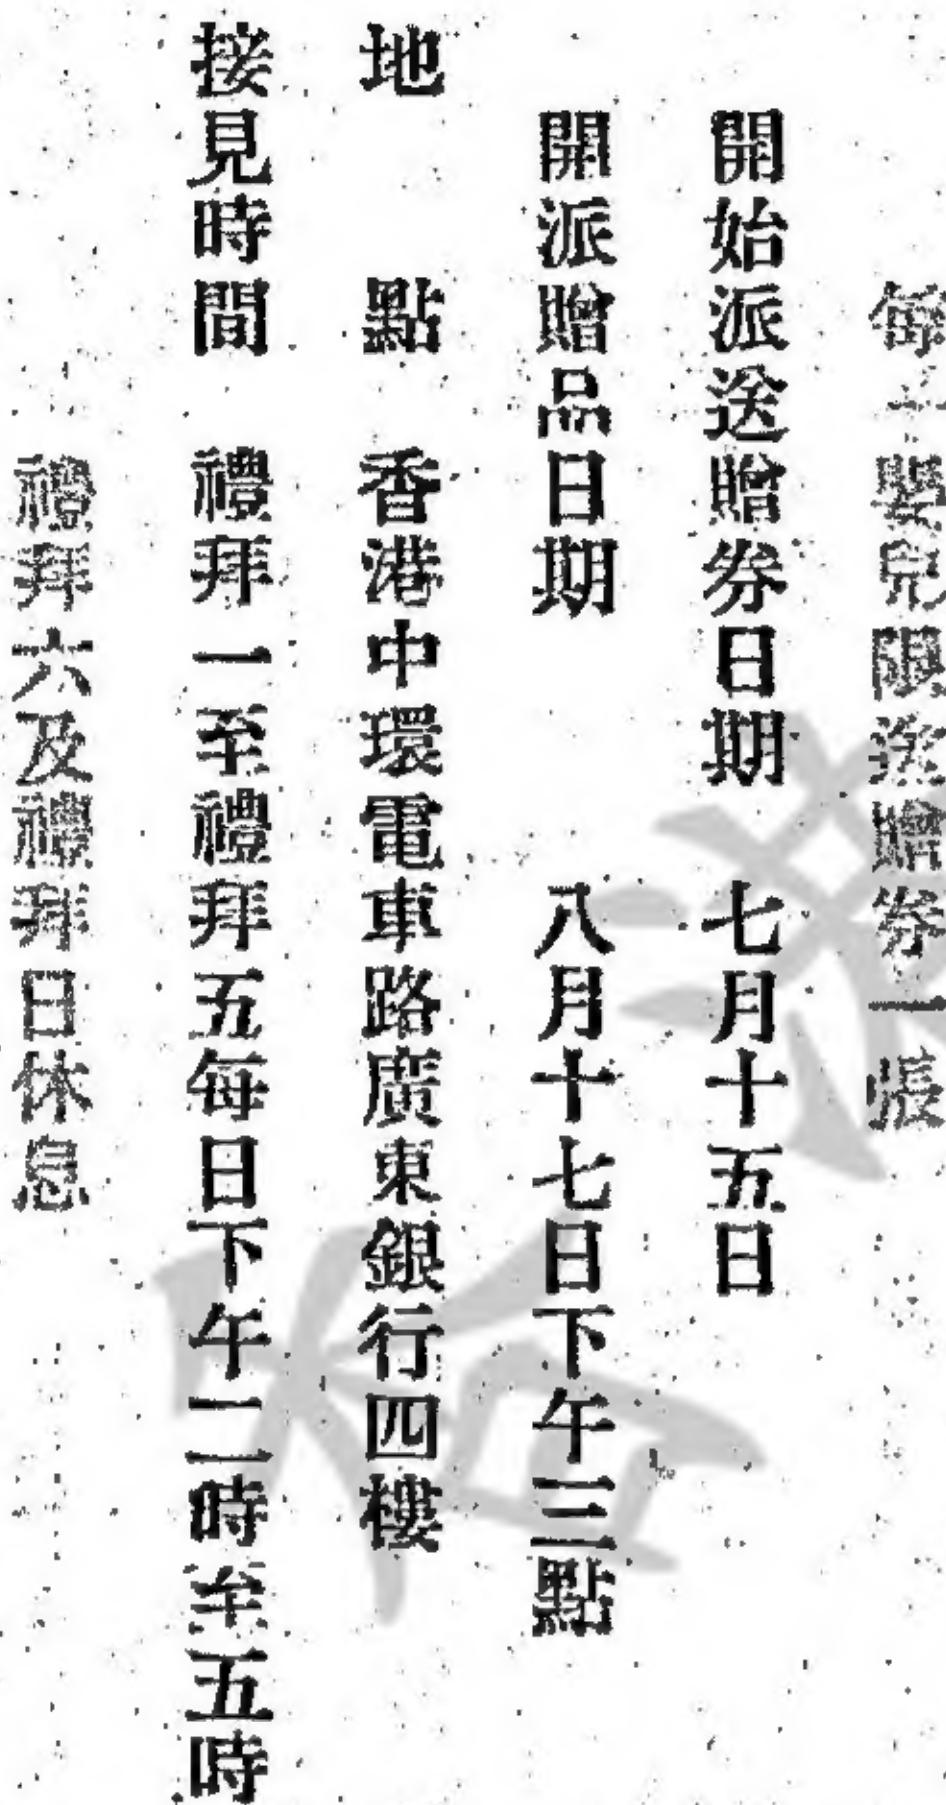 每一嬰兒限送贈券一張
開始派送贈券日期 七月十五日
開派贈品日期 八月十七日下午三點
地點 香港中環電車路廣東銀行四樓
接見時間 禮拜一至禮拜五每日下午二時至五時
禮拜六及禮拜日休息